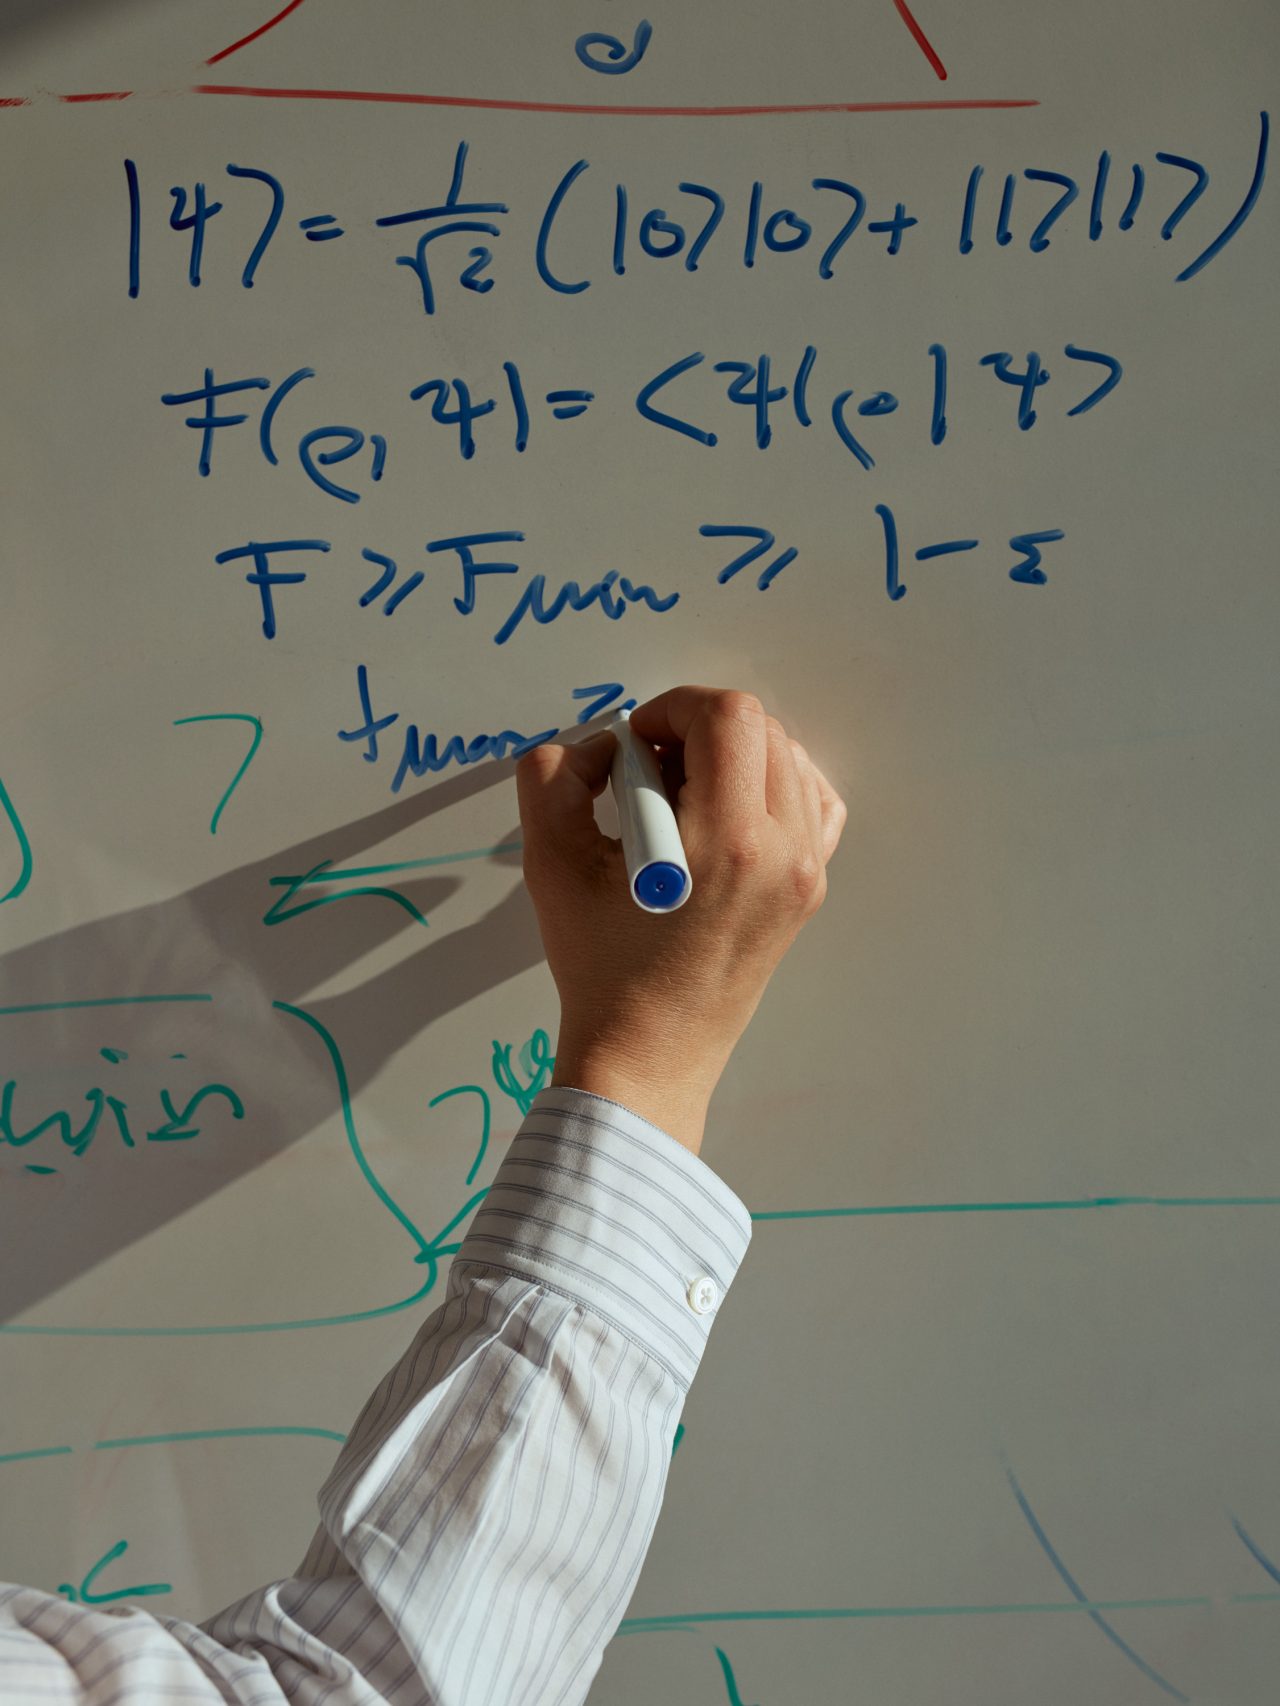 d
|ψ⟩ = 1/√2 (|0⟩|0⟩ + |1⟩|1⟩)
F(ρ, ψ) = <ψ|ρ|ψ>
F ≥ Fmin ≥ 1 - ε
tmax ≥